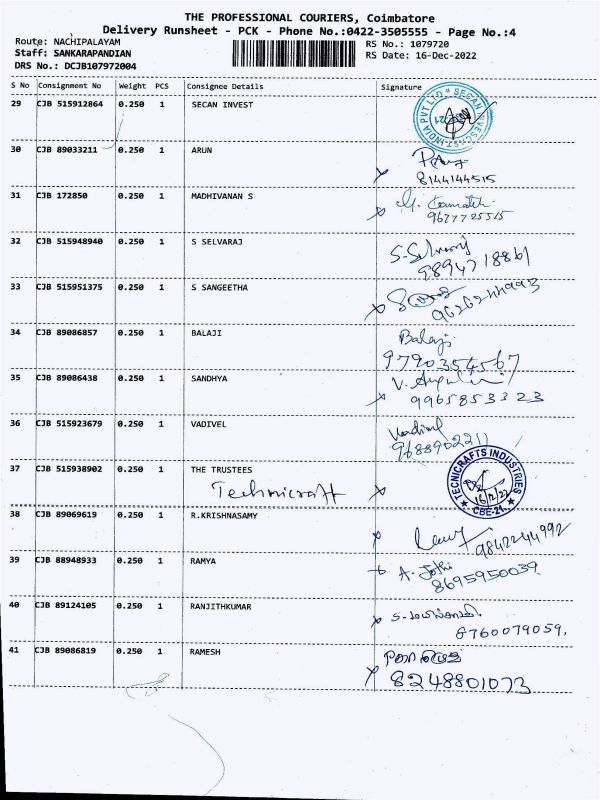 THE PROFESSIONAL COURIERS, Coimbatore
Delivery Runsheet - PCK - Phone No.:0422-3505555 - Page No.:4
Route: NACHIPALAYAM
RS No.: 1079720
Staff: SANKARAPANDIAN
RS Date: 16-Dec-2022
DRS No.: DCJB107972004
S No Consignment No Weight PCS Consignee Details Signature
29 CJB 515912864 0.250 1 SECAN INVEST
SECAN INVESCAST INDIA PVT LTD
30 CJB 89033211 0.250 1 ARUN
8144144515
31 CJB 172850 0.250 1 MADHIVANAN S
9677725515
32 CJB 515948940 0.250 1 S SELVARAJ
S-Selvaraj
9894718861
33 CJB 515951375 0.250 1 S SANGEETHA
9626244993
34 CJB 89086857 0.250 1 BALAJI
Balaji
9790354567
35 CJB 89086438 0.250 1 SANDHYA
9965853323
36 CJB 515923679 0.250 1 VADIVEL
Vadivel
9688902211
37 CJB 515938902 0.250 1 THE TRUSTEES
Technicraft
TECNICRAFTS INDUSTRIES
16/12/22
CBE-21
38 CJB 89069619 0.250 1 R.KRISHNASAMY
9842244992
39 CJB 88948933 0.250 1 RAMYA
A. Jothi
8695950039
40 CJB 89124105 0.250 1 RANJITHKUMAR
8760079059.
41 CJB 89086819 0.250 1 RAMESH
8248801073